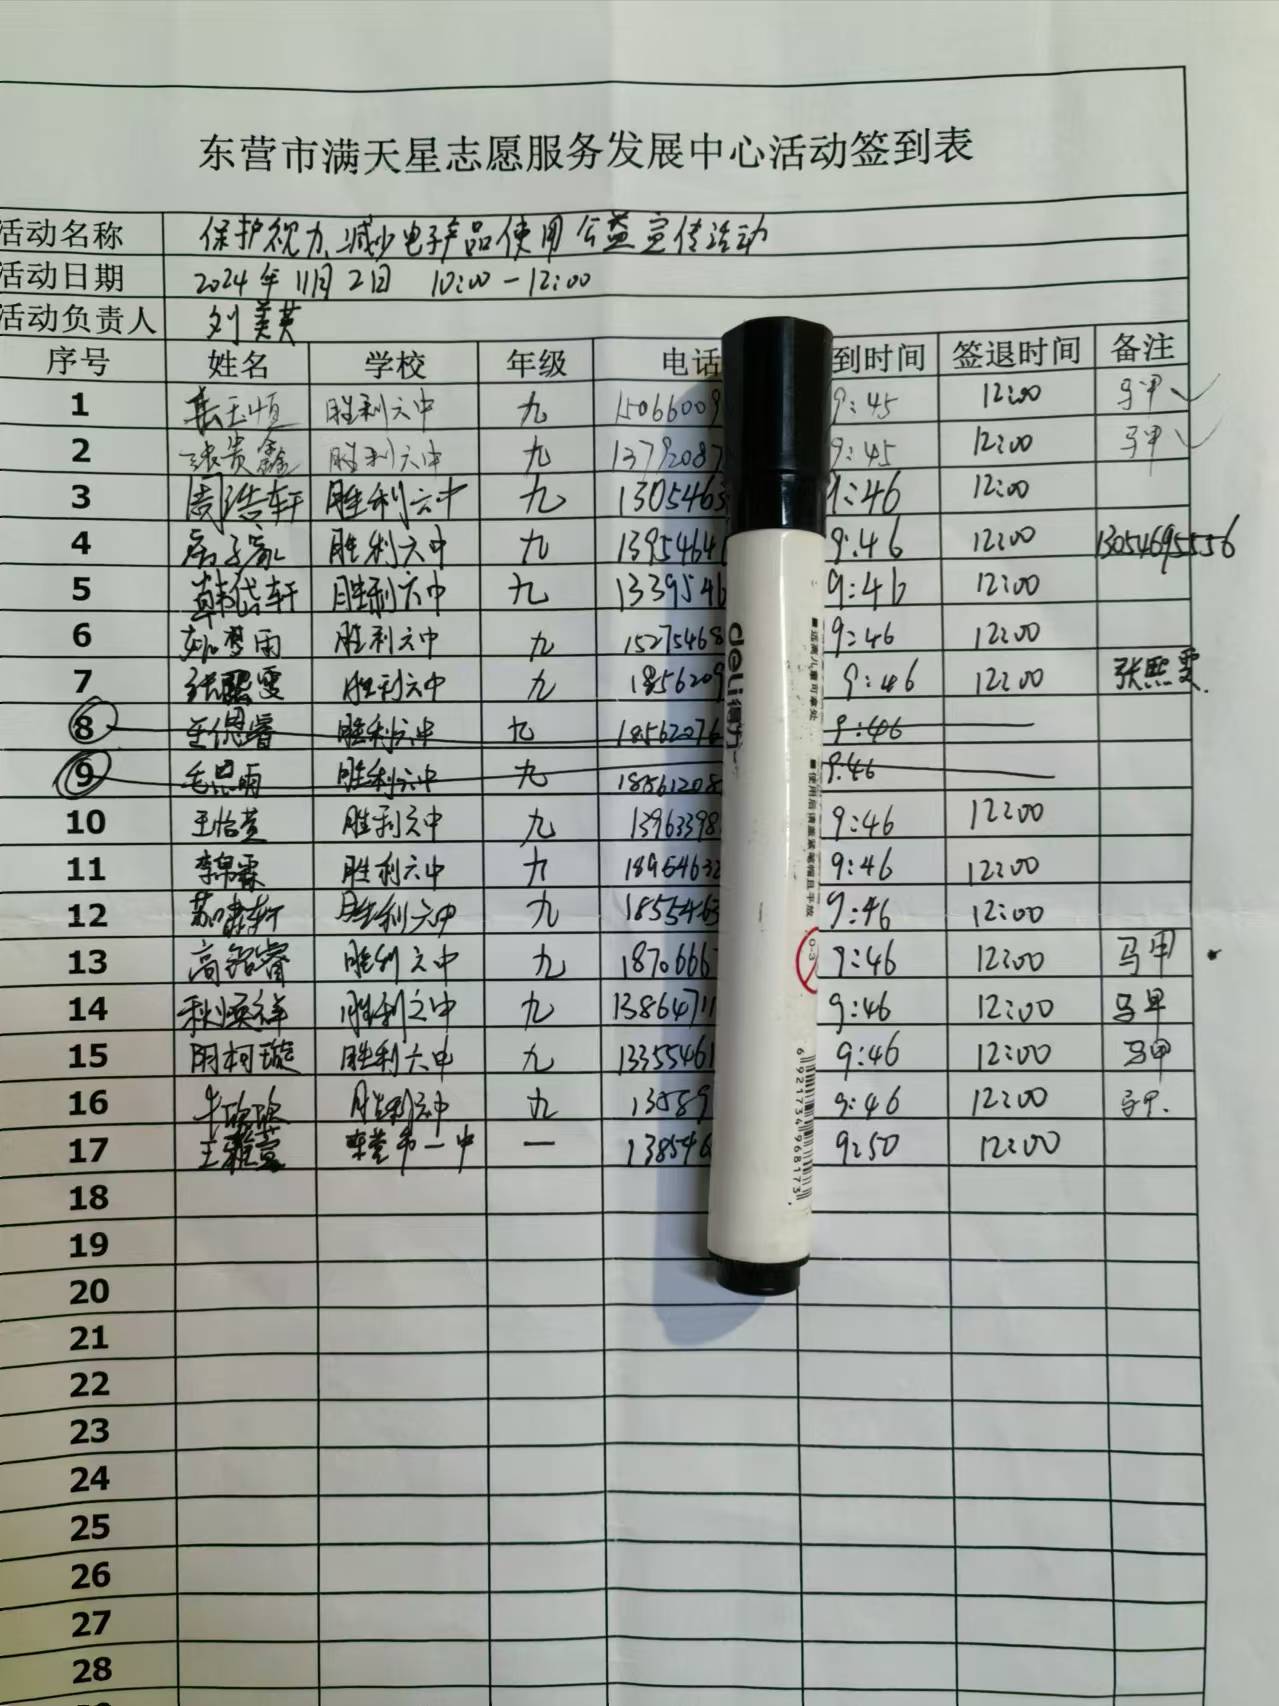 东营市满天星志愿服务发展中心活动签到表
活动名称 保护视力、减少电子产品使用公益宣传活动
活动日期 2024年11月2日 10:00-12:00
活动负责人 刘美英
序号 姓名 学校 年级 电话 到时间 签退时间 备注
1 胜利六中 九 15066009 9:45 12:00 马甲 ✓
2 张贵鑫 胜利六中 九 13792087 9:45 12:00 马甲 ✓
3 周浩轩 胜利六中 九 1305463 9:46 12:00
4 胜利六中 九 1395464 9:46 12:00 13054695556
5 韩岱轩 胜利六中 九 1339546 9:46 12:00
6 胜利六中 九 15275468 9:46 12:00
7 张熙雯 胜利六中 九 1856209 9:46 12:00 张熙雯
8 胜利六中 九 18562076 9:46
9 胜利六中 九 18561208 9:46
10 王怡萱 胜利六中 九 13963398 9:46 12:00
11 李帛霖 胜利六中 九 18964632 9:46 12:00
12 胜利六中 九 1855463 9:46 12:00
13 高铭睿 胜利六中 九 1870666 9:46 12:00 马甲
14 胜利六中 九 13864711 9:46 12:00 马甲
15 明柯璇 胜利六中 九 13355461 9:46 12:00 马甲
16 胜利六中 九 13589 9:46 12:00 马甲
17 王雅萱 东营市一中 一 138546 9:50 12:00
18
19
20
21
22
23
24
25
26
27
28
deli得力
■远离儿童可拿处
■使用后请盖紧笔帽且平放
0-3
6921734968173